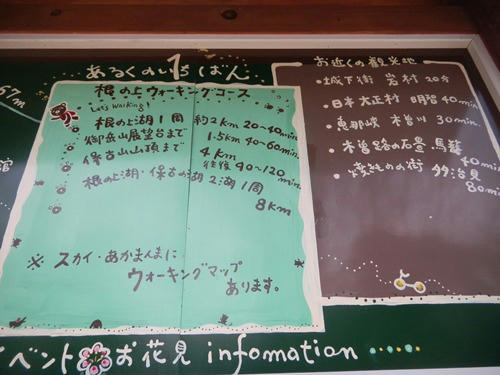 67m
館
あるくのいちばん
根の上ウォーキングコース
Let's walking!
根の上湖1周 約2km 20~40min.
御岳山展望台まで 1.5km 40~60min.
保古山山頂まで 4km 往復40~120min.
根の上湖・保古の湖2湖1周 8km
※ スカイ・あかまんまに
ウォーキングマップ
あります。
お近くの観光地
・城下街 岩村 20分
・日本大正村 明智 40min.
・恵那峡 木曽川 30min.
・木曽路の石畳 馬籠 40min
・焼きものの街 多治見 80min.
イベント お花見 infomation